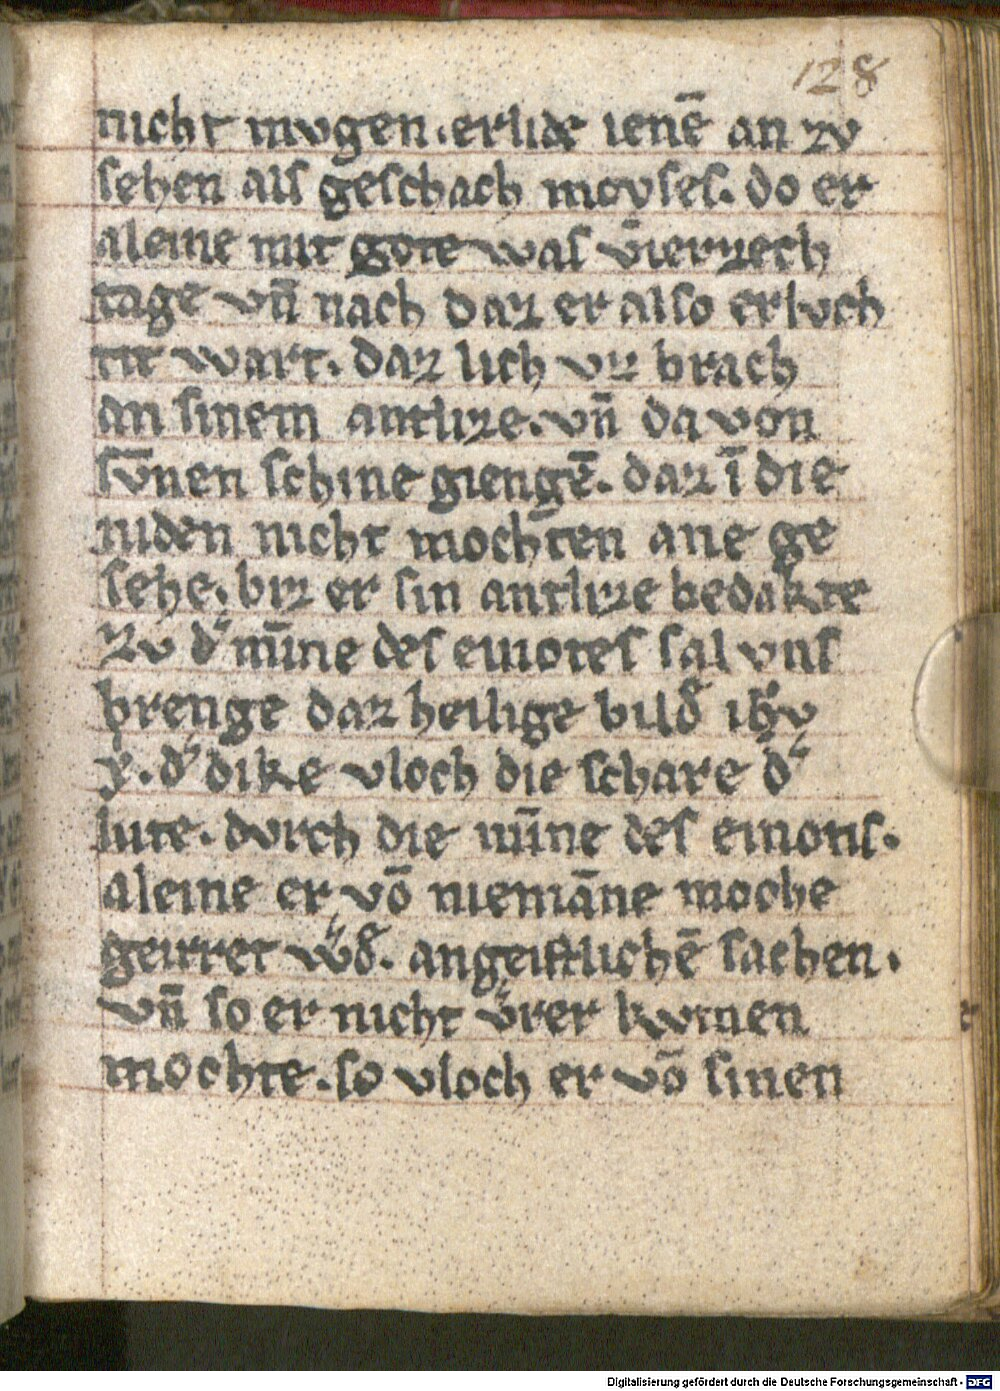 128
nicht mvgen. erlide ienē an zv
sehen als geschach moyses. do er
aleine mit gote was vierzech
tage vn̄ nach daz er also erlvch
tit wart. daz lich vz brach
an sinem antlize. vn̄ da von
svnen schine giengē. daz ī die
iuden nicht mochten ane ge
sehe. biz er sin antlize bedakte
Zv d' mīne des einotes sal vns
brenge daz heilige bild' ih'v
x'. d' dike vloch die schare d'
lute. dvrch die mīne des einotis.
aleine er vō niemāne moche
geirret w'd'. an geistlichē sachen.
vn̄ so er nicht v'rer kvmen
mochte. so vloch er vō sinen
Digitalisierung gefördert durch die Deutsche Forschungsgemeinschaft - DFG